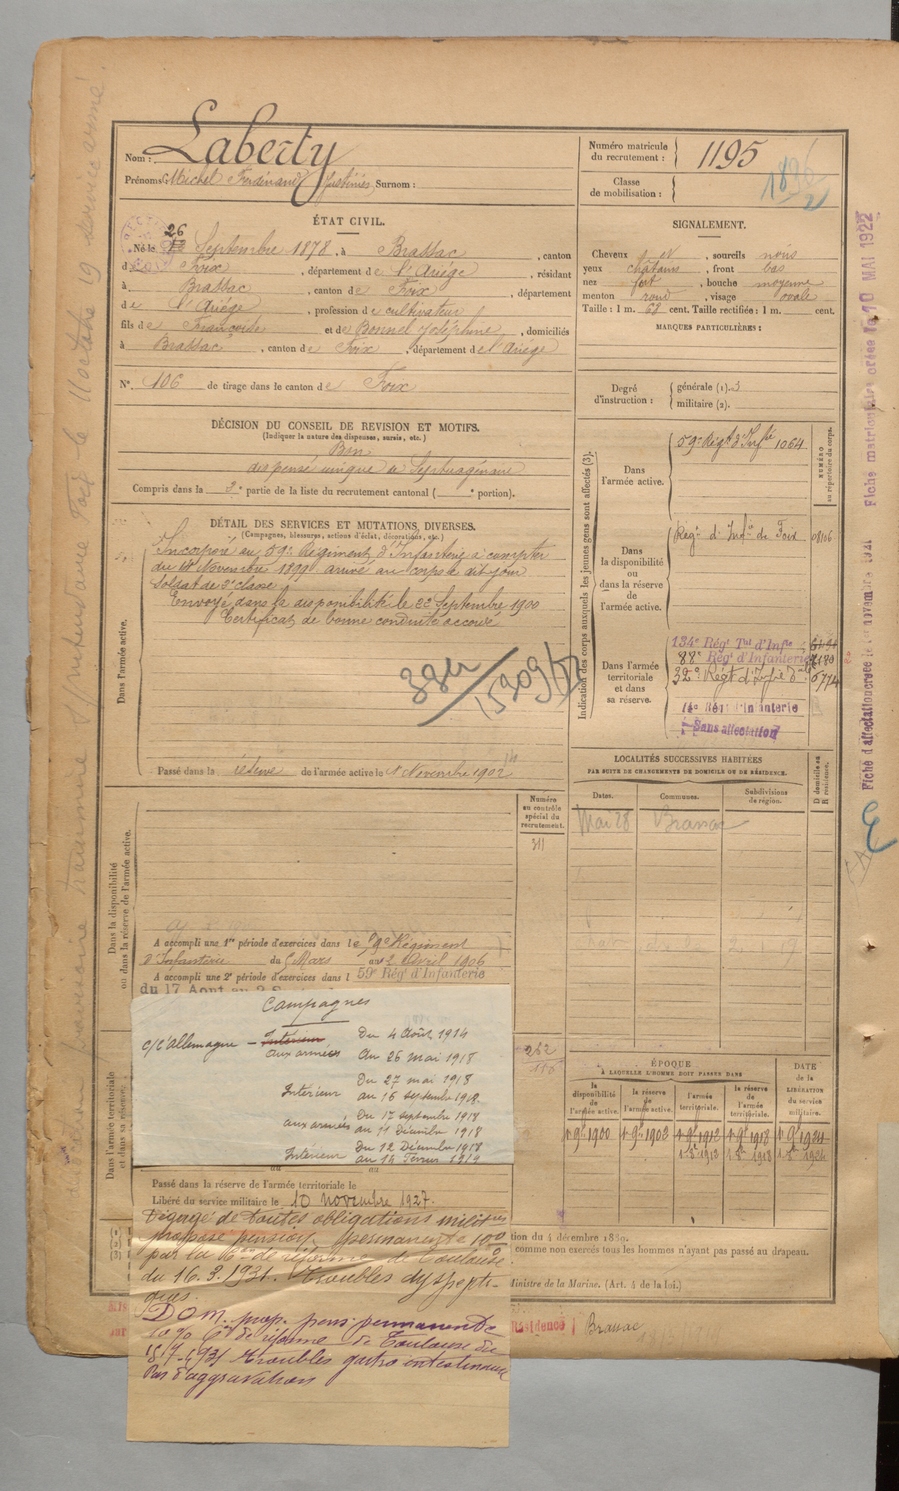 Nom : Laberty
Prénoms : Michel Ferdinand Justinis Surnom :
Numéro matricule du recrutement : 1195
Classe de mobilisation :
ÉTAT CIVIL.
Né le 26 Septembre 1878, à Brassac, canton
de Foix, département de l'Ariège, résidant
à Brassac, canton de Foix, département
de l'Ariège, profession de cultivateur
fils de Françoise et de Bonnel Joséphine, domiciliés
à Brassac, canton de Foix, département de l'Ariège
N° 106 de tirage dans le canton de Foix
SIGNALEMENT.
Cheveux et, sourcils noirs
yeux châtains, front bas
nez fort, bouche moyenne
menton rond, visage ovale
Taille : 1 m. 68 cent. Taille rectifiée : 1 m. cent.
MARQUES PARTICULIÈRES :
Degré d'instruction : générale (1). 3
militaire (2).
DÉCISION DU CONSEIL DE REVISION ET MOTIFS.
(Indiquer la nature des dispenses, sursis, etc.)
Bon
dispensé unique de Septuagénaire
Compris dans la 3e partie de la liste du recrutement cantonal ( e portion).
DÉTAIL DES SERVICES ET MUTATIONS DIVERSES.
(Campagnes, blessures, actions d'éclat, décorations, etc.)
Dans l'armée active.
Incorporé au 59e Régiment d'Infanterie à compter
du 14 Novembre 1899 arrivé au corps le dit jour
Soldat de 2e classe
Envoyé dans la disponibilité le 22 Septembre 1900
Certificat de bonne conduite accordé
Passé dans la réserve de l'armée active le 1r Novembre 1902
Indication des corps auxquels les jeunes gens sont affectés (3).
NUMÉRO au répertoire du corps.
Dans l'armée active.
59e Régt d'Infie 1064
Dans la disponibilité ou dans la réserve de l'armée active.
Régnt d'Infie de Foix 08106
Dans l'armée territoriale et dans sa réserve.
134e Régt Tal d'Infie
88e Régt d'Infanterie
32e Régt d'Infie 6774
14e Régt d'Infanterie
Sans affectation
LOCALITÉS SUCCESSIVES HABITÉES
PAR SUITE DE CHANGEMENTS DE DOMICILE OU DE RÉSIDENCE.
Dates. Communes. Subdivisions de région. D domicile ou R résidence.
Mai 28 Brassac
Dans la disponibilité ou dans la réserve de l'armée active.
Numéro au contrôle spécial du recrutement.
311
A accompli une 1re période d'exercices dans le 59e Régiment
d'Infanterie du 5 Mars au 2 Avril 1906
A accompli une 2e période d'exercices dans l 59e Régt d'Infanterie
du 17 Aout au 2
Campagnes
c/ l'Allemagne – Intérieur Du 4 Août 1914
aux armées au 26 mai 1918
Intérieur Du 27 mai 1918
au 16 septembre 1918
aux armées Du 17 septembre 1918
au 11 Décembre 1918
Intérieur Du 12 Décembre 1918
au 14 Février 1919
262
Dans l'armée territoriale et dans sa réserve.
ÉPOQUE
À LAQUELLE L'HOMME DOIT PASSER DANS
la disponibilité de l'armée active. la réserve de l'armée active. l'armée territoriale. la réserve de l'armée territoriale.
DATE de la LIBÉRATION du service militaire.
1r 9bre 1900 1r 9bre 1902 1r 9bre 1912 1r 9bre 1918 1r 9bre 1924
Passé dans la réserve de l'armée territoriale le
Libéré du service militaire le 10 novembre 1927.
Dégagé de toutes obligations militres
proposé pension permanente 10%
par la Con de réforme de Toulouse
du 16.3.1931. Troubles dyspepti-
ques.
DOM. prop. pens. permanente
10% Con de réforme de Toulouse du
troubles gastro intestinaux
Pas d'aggravation
tion du 4 décembre 1889.
comme non exercés tous les hommes n'ayant pas passé au drapeau.
Ministre de la Marine. (Art. 4 de la loi.)
Résidence Brassac
Fiche matriculaire créée le 10 MAI 1922
Fiche d'affectation créée le 1er novembre